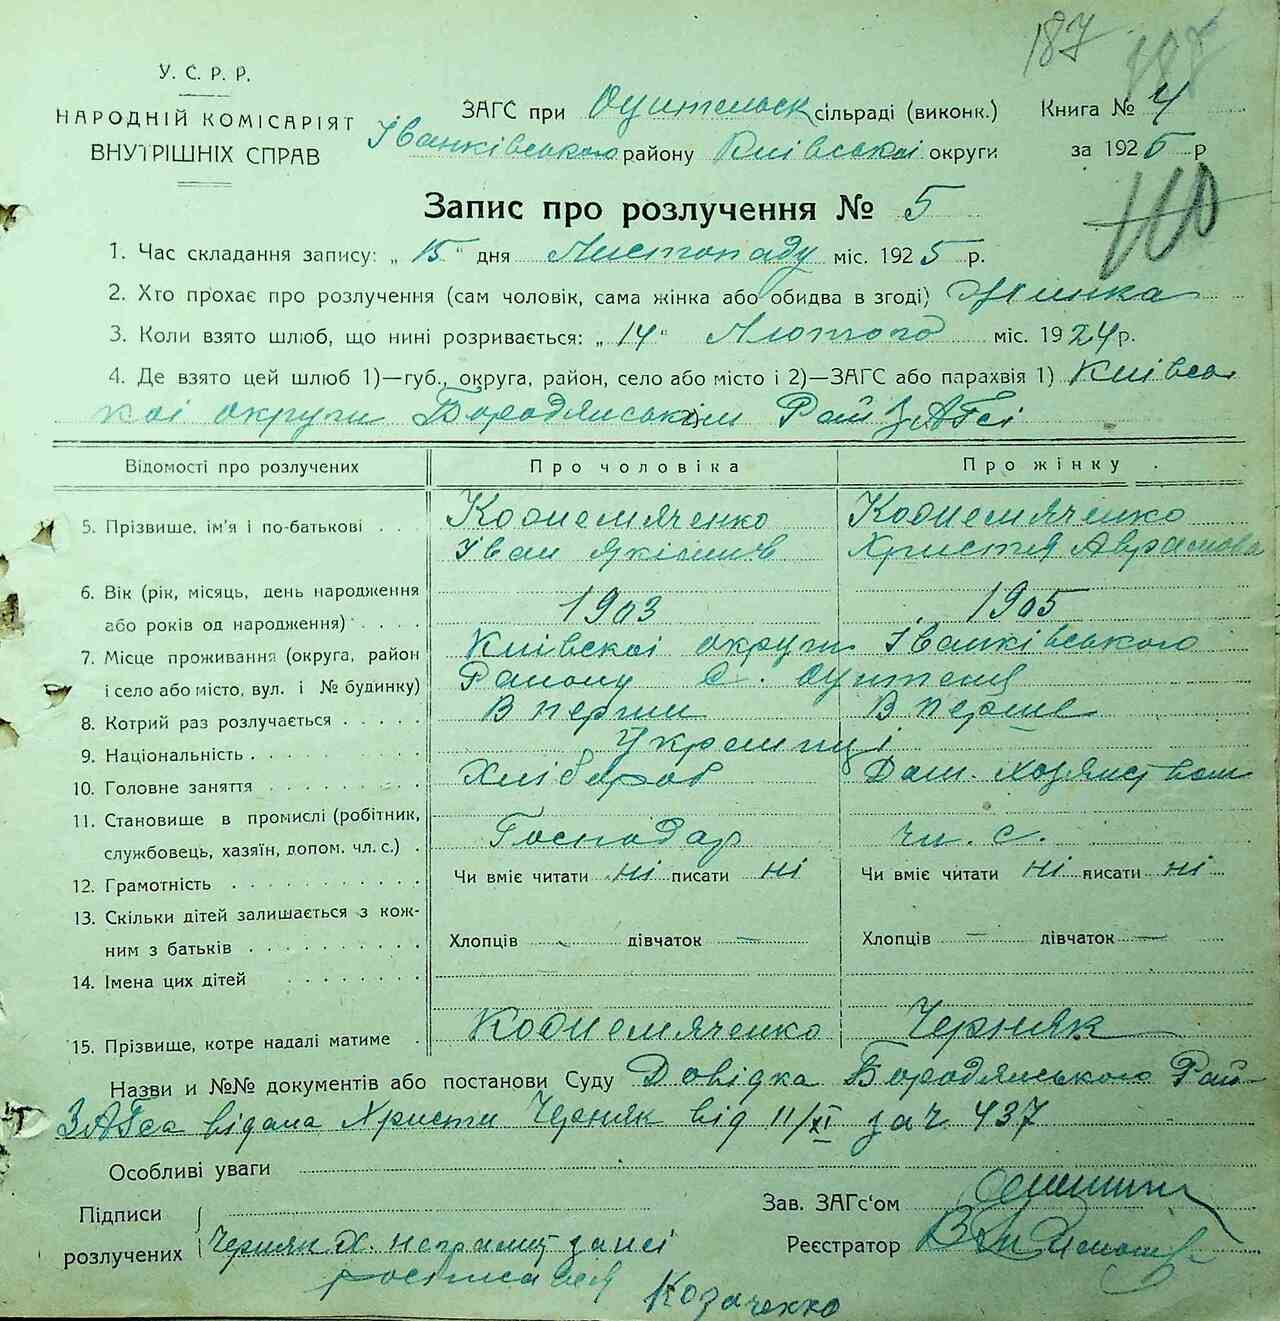 187
У. С. Р. Р.
НАРОДНІЙ КОМІСАРІЯТ
ВНУТРІШНІХ СПРАВ
ЗАГС при сільраді (виконк.) Книга № 4
Іванківського району Київської округи за 1925 р
Запис про розлучення № 5
1. Час складання запису: „ 15 " дня Листопаду міс. 1925 р.
2. Хто прохає про розлучення (сам чоловік, сама жінка або обидва в згоді) Жинка
3. Коли взято шлюб, що нині розривається: „ 14 " Лютого міс. 1924 р.
4. Де взято цей шлюб 1)—губ., округа, район, село або місто і 2)—ЗАГС або парахвія 1) Київсь
коі округи Бородянськім Рай ЗАГсі
Відомості про розлучених Про чоловіка Про жінку
5. Прізвище, ім'я і по-батькові Коонемяченко Коонемяченко
Іван Якімич Христя Аврамова
6. Вік (рік, місяць, день народження
або років од народження) 1903 1905
7. Місце проживання (округа, район Київскоі округи Іванківського
і село або місто, вул. і № будинку) Району С.
8. Котрий раз розлучається В перши В перше
9. Національність Украинці
10. Головне заняття Хлібороб Дом. хозяиством
11. Становище в промислі (робітник,
службовець, хазяїн, допом. чл. с.) Господар чл. с.
12. Грамотність Чи вміє читати ні писати ні Чи вміє читати ні писати ні
13. Скільки дітей залишається з кож-
ним з батьків Хлопців — дівчаток — Хлопців — дівчаток —
14. Імена цих дітей
15. Прізвище, котре надалі матиме Коонемяченко Черняк
Назви и №№ документів або постанови Суду Довідка Бородянського Рай-
ЗАГса відана Христи Черняк від 11/XI за ч 437
Особливі уваги
Підписи Зав. ЗАГс'ом
розлучених Черняк Х. неграмот за неі Реєстратор
росписався
Козаченко